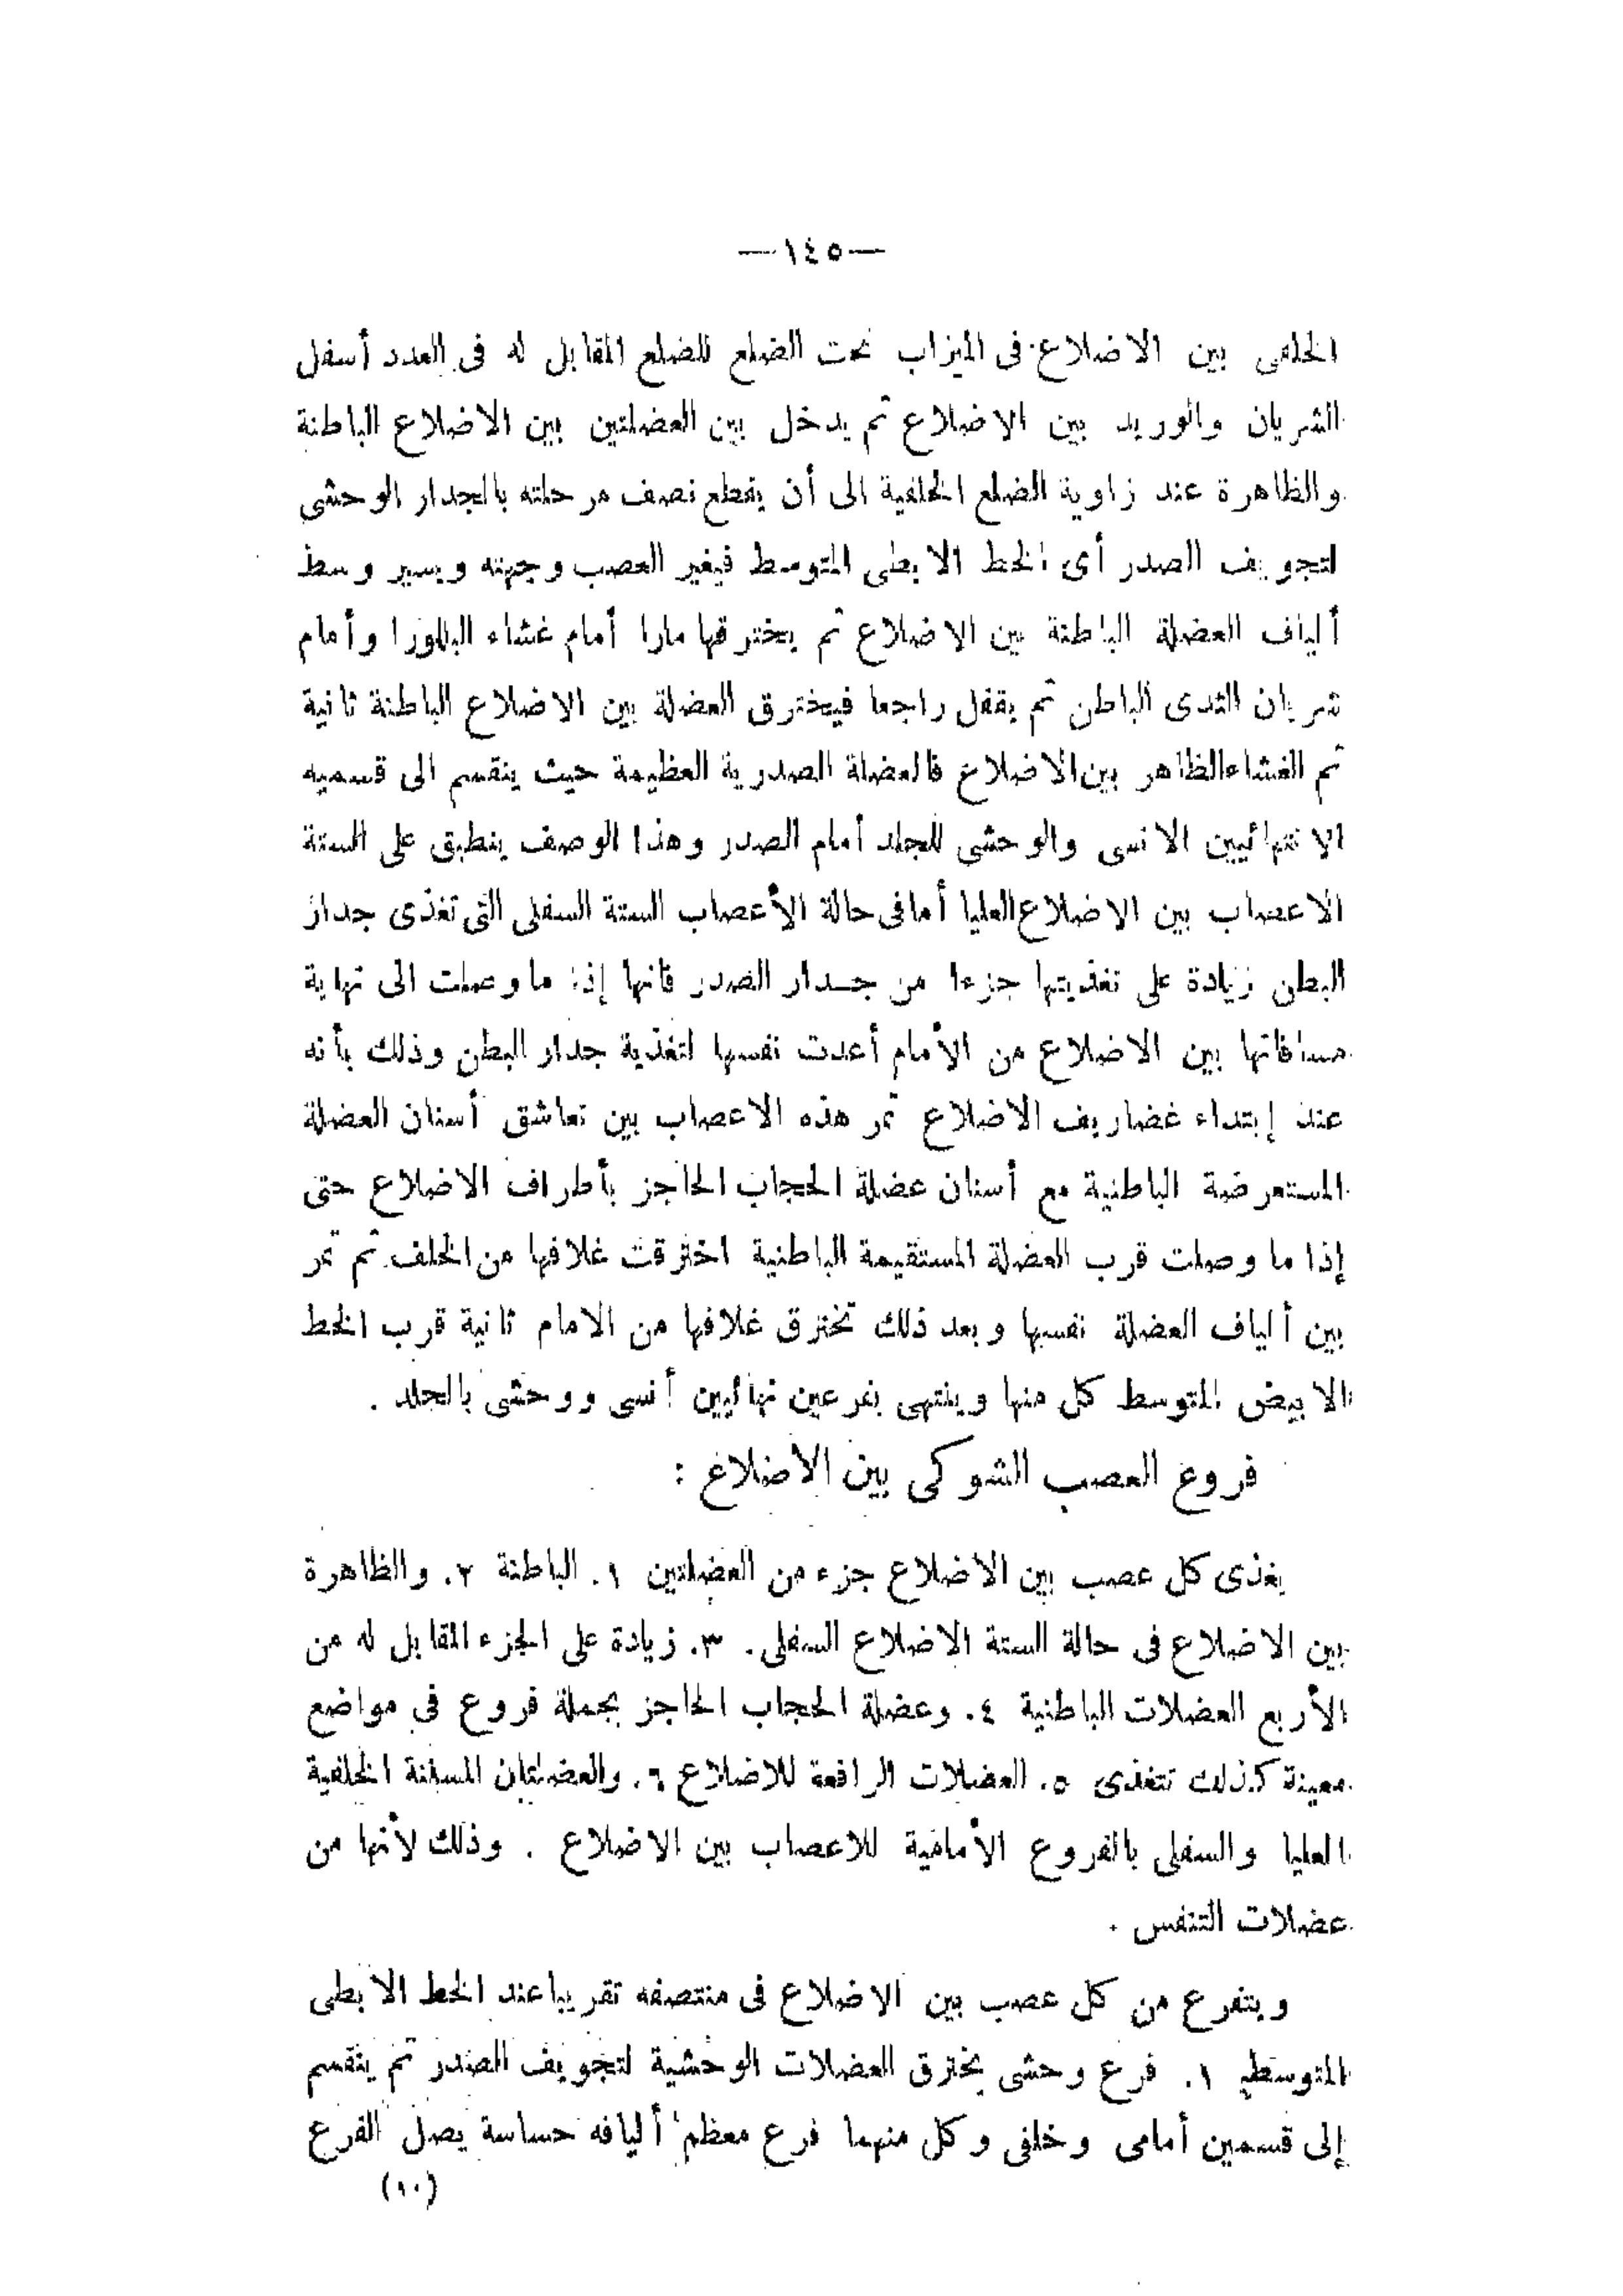 —١٤٥—
الخلفى بين الاضلاع فى الميزاب تحت الضلع للضلع المقابل له فى العدد أسفل
الشريان والوريد بين الاضلاع ثم يدخل بين العضلتين بين الاضلاع الباطنة
والظاهرة عند زاوية الضلع الخلفية الى أن يقطع نصف مرحلته بالجدار الوحشى
لتجويف الصدر أى الخط الابطى المتوسط فيغير العصب وجهته ويسير وسط
ألياف العضلة الباطنة بين الاضلاع ثم يخترقها مارا أمام غشاء البللورا وأمام
شريان الثدى الباطن ثم يقفل راجعا فيخترق العضلة بين الاضلاع الباطنة ثانية
ثم الغشاء الظاهر بين الاضلاع فالعضلة الصدرية العظيمة حيث ينقسم الى قسميه
الانتهائيين الانسى والوحشى للجلد أمام الصدر وهذا الوصف ينطبق على الستة
الاعصاب بين الاضلاع العليا أما فى حالة الأعصاب الستة السفلى التى تغذى جدار
البطن زيادة على تغذيتها جزءا من جدار الصدر فانها إذا ما وصلت الى نهاية
مسافاتها بين الاضلاع من الأمام أعدت نفسها لتغذية جدار البطن وذلك بأنه
عند إبتداء غضاريف الاضلاع تمر هذه الاعصاب بين تعاشق أسنان العضلة
المستعرضة الباطنية مع أسنان عضلة الحجاب الحاجز بأطراف الاضلاع حتى
إذا ما وصلت قرب العضلة المستقيمة الباطنية اخترقت غلافها من الخلف ثم تمر
بين ألياف العضلة نفسها وبعد ذلك تخترق غلافها من الامام ثانية قرب الخط
الابيض المتوسط كل منها وينتهى بفرعين نهائيين أنسى ووحشى بالجلد .
فروع العصب الشوكى بين الاضلاع :
يغذى كل عصب بين الاضلاع جزء من العضلتين ١. الباطنة ٢. والظاهرة
بين الاضلاع فى حالة الستة الاضلاع السفلى. ٣. زيادة على الجزء المقابل له من
الأربع العضلات الباطنية ٤. وعضلة الحجاب الحاجز بجملة فروع فى مواضع
معينة كذلك تتغذى ٥. العضلات الرافعة للاضلاع ٦. والعضلتان المسننة الخلفية
العليا والسفلى بالفروع الأمامية للاعصاب بين الاضلاع . وذلك لأنها من
عضلات التنفس .
ويتفرع من كل عصب بين الاضلاع فى منتصفه تقريبا عند الخط الابطى
المتوسط ١. فرع وحشى يخترق العضلات الوحشية لتجويف الصدر ثم ينقسم
إلى قسمين أمامى وخلفى وكل منهما فرع معظم أليافه حساسة يصل الفرع
(١٠)